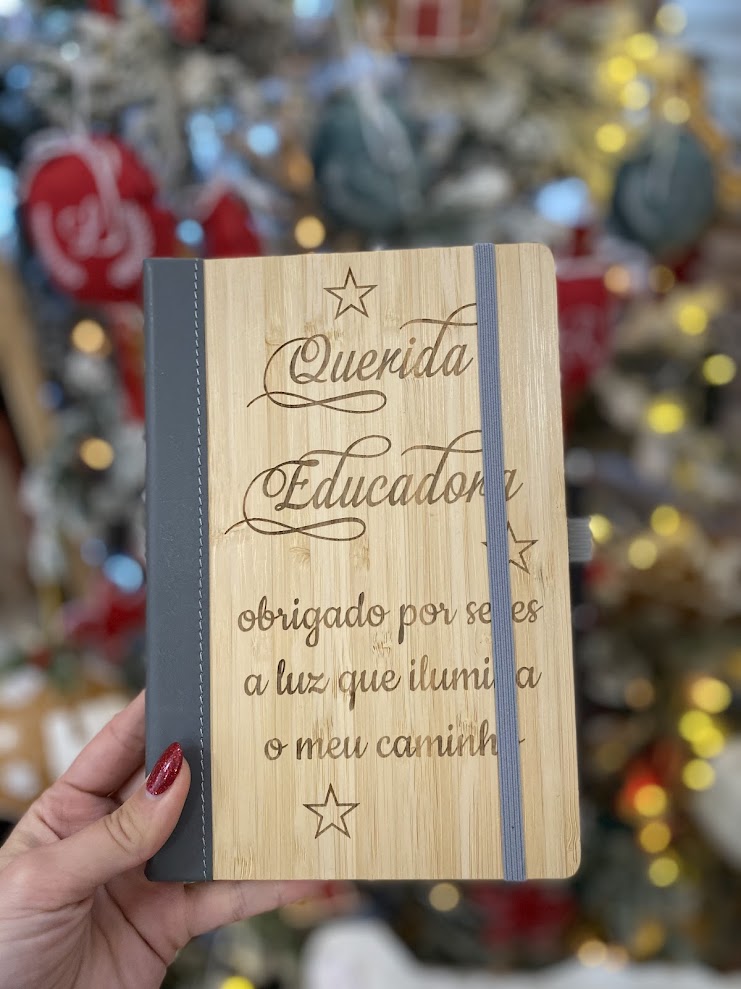 Querida
Educadora
obrigado por seres
a luz que ilumina
o meu caminho